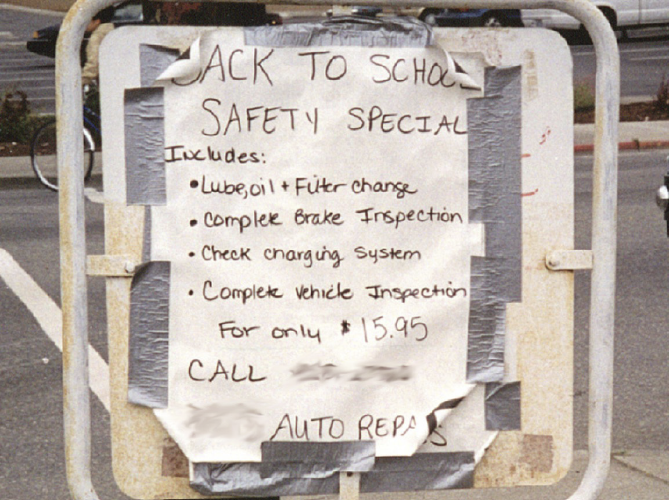 BACK TO SCHOOL
SAFETY SPECIAL
Includes:
• Lube, oil + Filter change
• Complete Brake Inspection
• Check charging System
• Complete Vehicle Inspection
For only $15.95
CALL
AUTO REPAIRS